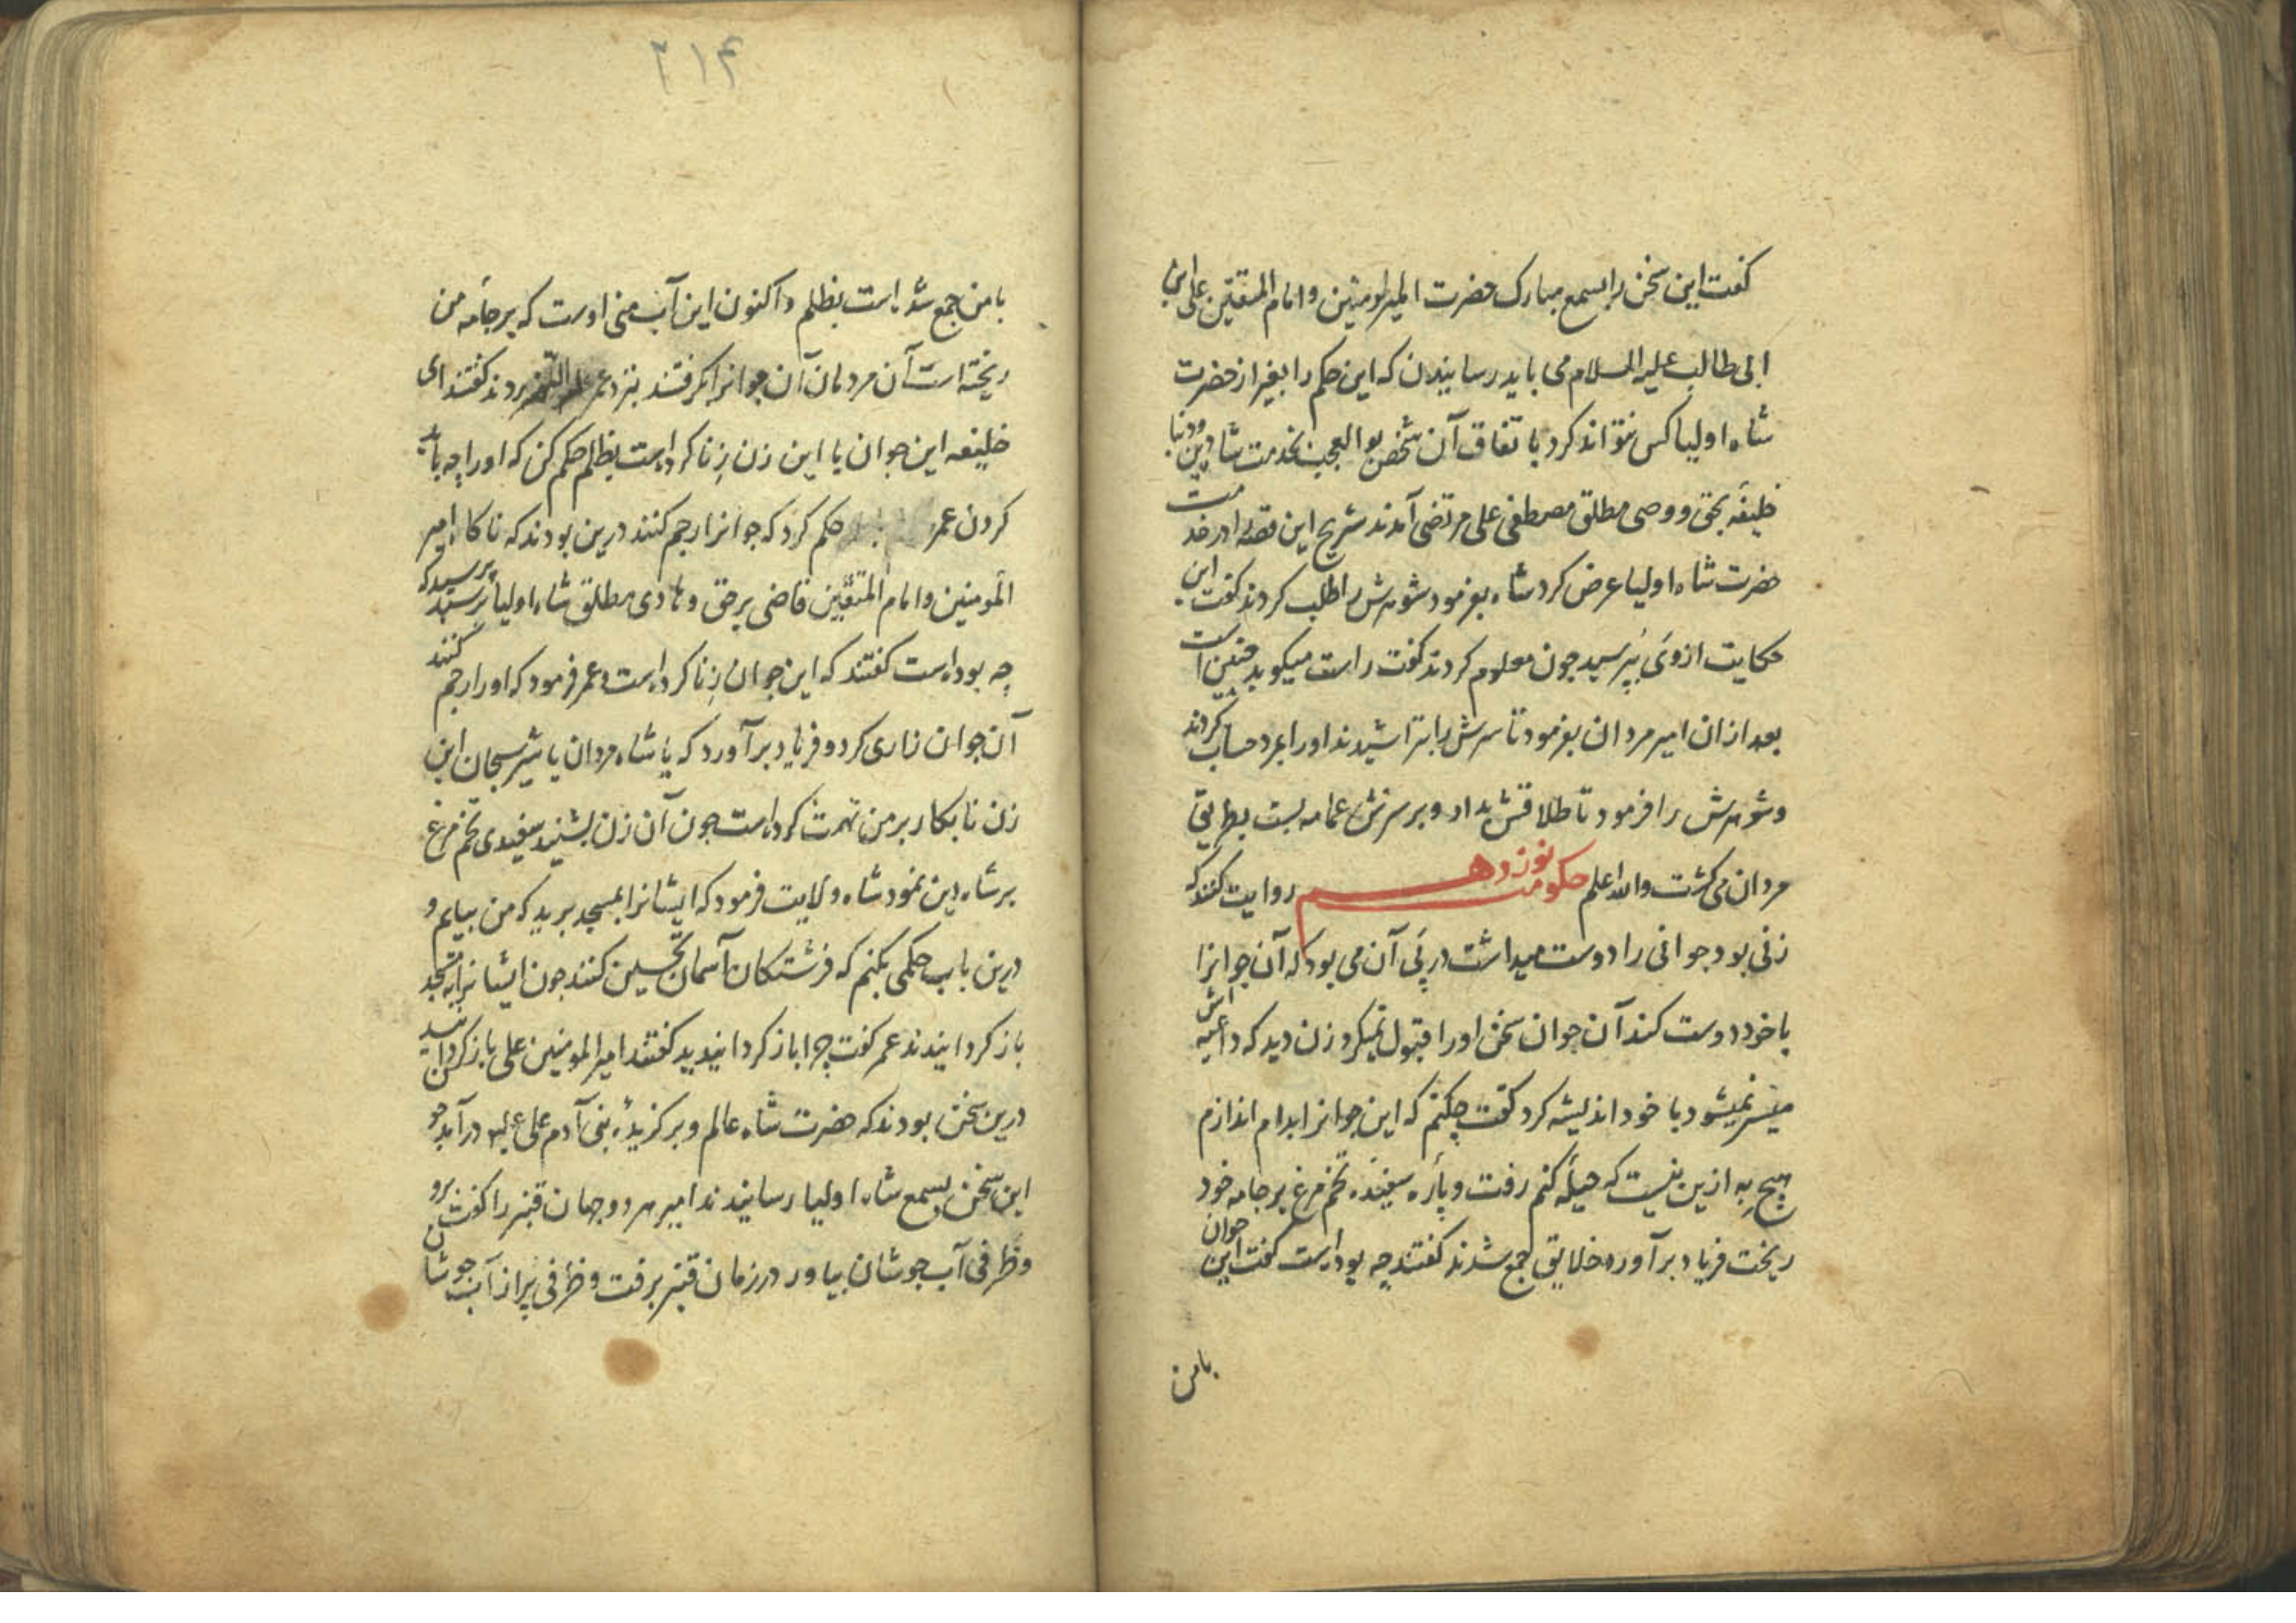 کفت این سخن را بسمع مبارک حضرت امیرالمومنین و امام المتقین علی ابن
ابی طالب علیه السلام می باید رسانیدن که این حکم را بغیر از حضرت
شاه اولیا کس نتواند کرد باتفاق آن شخص بوالعجب بخدمت شاه دین و دنیا
خلیفهٔ بحق و وصی مطلق مصطفی علی مرتضی آمدند شریح این قصه را در خدمت
حضرت شاه اولیا عرض کرد شاه بفرمود شوهرش را طلب کردند کفت این
حکایت از وی بپرسید چون معلوم کردند کفت راست میکوید چنین است
بعد ازان امیر مردان بفرمود تا سرش را بتراشیدند او را بمرد حساب کردند
و شوهرش را فرمود تا طلاقش بداد و بر سرش عمامه بست بطریق
مردان می کشت والله اعلم حکومت نوزدهم روایت کنند که
زنی بود جوانی را دوست میداشت در پی آن می بود که آن جوانرا
با خود دوست کند آن جوان سخن او را قبول نمیکرد زن دید که داعیه اش
میسر نمیشود با خود اندیشه کرد کفت چکنم که این جوانرا بدام اندازم
هیچ به ازین نیست که حیله کنم رفت و پاره سفیده تخم مرغ بر جامه خود
ریخت فریاد برآورد خلایق جمع شدند کفتند چه بوده است کفت این جوان
بامن
۲۱۴
بامن جمع شده است بظلم و اکنون این آب منی اوست که بر جامه من
ریخته است آن مردمان آن جوانرا بکرفتند بنزد عمر بردند کفتند ای
خلیفه این جوان با این زن زنا کرده است بظلم حکم کن که او را چه باید
کردن عمر حکم کرد که جوانرا رجم کنند درین بودند که ناکاه امیر
المومنین و امام المتقین قاضی برحق و هادی مطلق شاه اولیا برسید پرسید که
چه بوده است کفتند که این جوان زنا کرده است و عمر فرمود که او را رجم کنند
آن جوان زاری کرد و فریاد برآورد که یا شاه مردان یا شیر سبحان این
زن نابکار بر من تهمت کرده است چون آن زن بشنید سفیدی تخم مرغ
بر شاه دین نمود شاه ولایت فرمود که ایشانرا بمسجد برید که من بیایم و
درین باب حکمی بکنم که فرشتکان آسمان تحسین کنند چون ایشانرا بمسجد
باز کردانیدند عمر کفت چرا باز کردانیدید کفتند امیرالمومنین علی باز کردانید
درین سخن بودند که حضرت شاه عالم و برکزیدهٔ بنی آدم علی علیه درآمد چون
این سخن بسمع شاه اولیا رسانیدند امیر هر دو جهان قنبر را کفت برو
و ظرفی آب جوشان بیاور در زمان قنبر برفت و ظرفی پر از آب جوشان